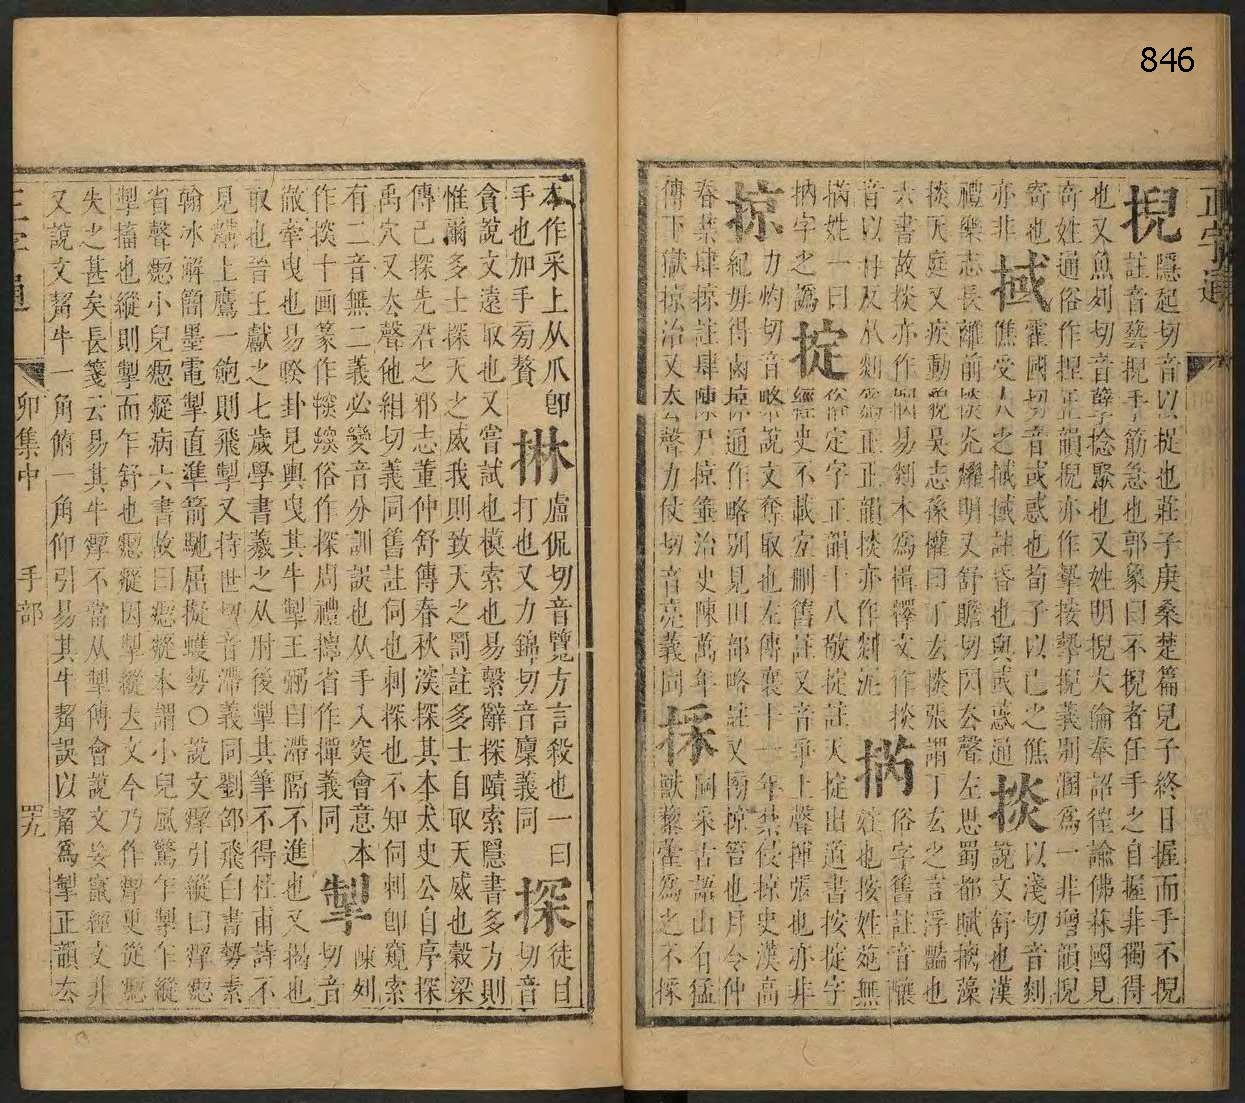 846
正字通
掜
隱起切音以捉也莊子庚桑楚篇兒子終日握而手不掜
註音藝掜手筋急也郭象曰不掜者任手之自握非獨得
也又魚列切音孽捻聚也又姓明掜大倫奉詔徃諭佛菻國見
奇姓通俗作捏正韻掜亦作摰按摰掜義別溷爲一非增韻掜
寄也
掝
霍國切音或惑也荀子以已之僬
亦非
僬受人之掝掝註昏也與或惑通
掞
以淺切音剡
說文舒也漢
禮樂志長離前掞光耀明又舒贍切閃去聲左思蜀都賦摛藻
掞天庭又疾動貌吳志孫權曰丁玄掞張謂丁玄之言浮豔也
六書故掞亦作因易剡木爲楫釋文作掞
㨋
俗字舊註音饟
音以毌及从剡爲正正韻掞亦作剡泥
姓也按姓苑無
㨋姓一曰
掟
俗定字正韻十八敬掟註天掟出道書按掟字
抐字之譌
經史不載宜刪舊註又音爭上聲揮張也亦非
掠
力灼切音略說文奪取也左傳襄十一年禁侵掠史漢高
紀毋得鹵掠通作略別見田部略註又搒掠笞也月令仲
春禁肆掠註肆陳尸掠箠治史陳萬年
傳下獄掠治又去聲力仗切音亮義同
採
同采古語山有猛
獸藜藿爲之不採
本作采上从爪卽
手也加手旁贅
㨆
盧侃切音覽方言殺也一曰
打也又力錦切音廩義同
探
徒甘
切音
貪說文遠取也又嘗試也摸索也易繫辭探賾索隱書多方則
惟爾多士探天之威我則致天之罰註多士自取天威也穀梁
傳己探先君之邪志董仲舒傳春秋深探其本太史公自序探
禹穴又去聲他紺切義同舊註伺也刺探也不知伺刺卽窺索
有二音無二義必變音分訓誤也从手入突會意本
作㨏十画篆作㨏俗作探周禮撢省作撢義同
掣
陳列
切音
澈牽曳也易睽卦見輿曳其牛掣王弼曰滯隔不進也又揭也
取也晉王獻之七歲學書羲之从肘後掣其筆不得杜甫詩不
見鞲上鷹一飽則飛掣又持世切音滯義同劉邵飛白書勢素
翰冰解簡墨電掣直準箭馳屈擬蠖勢○說文瘛引縱曰瘛瘛
省聲瘛小兒瘛瘲病六書故曰瘛瘲本謂小兒風驚乍掣乍縱
掣搐也縱則掣而乍舒也瘛瘲因掣縱去文今乃作瘛更從瘛
失之甚矣長箋云易其牛瘛不當从掣傅會說文妄竄經文非
又說文觢牛一角俯一角仰引易其牛觢誤以觢爲掣正韻去
正字通
卯集中
手部
罒九